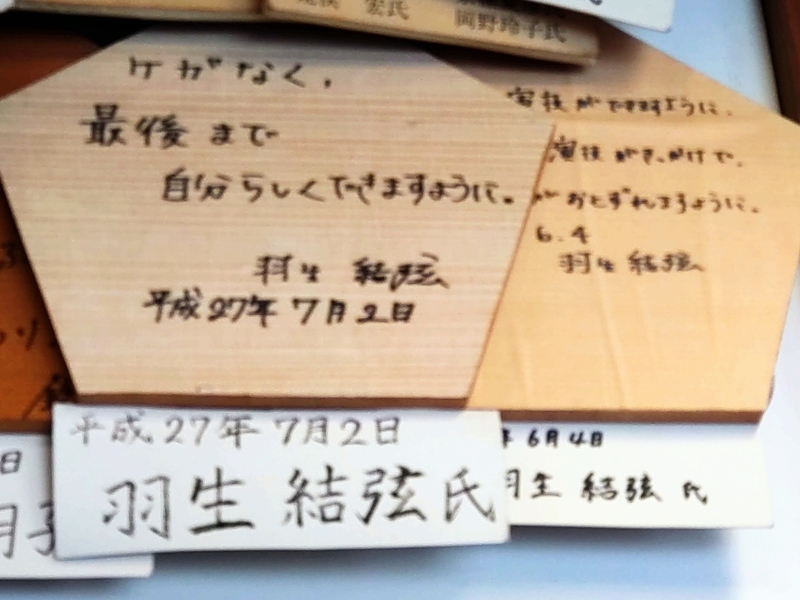 宏氏
岡野玲子氏
ケガなく、
最後まで
自分らしくできますように。
羽生 結弦
平成27年7月2日
演技ができますように。
演技がきっかけで、
がおとずれますように。
6.4
羽生 結弦
平成27年7月2日
羽生 結弦氏
年 6月4日
羽生 結弦 氏
日